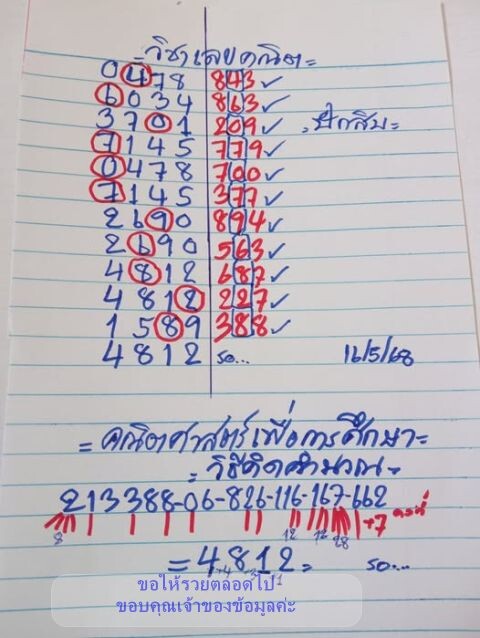 =วิชาเลขคณิต=
0478 843✓
6034 863✓
3701 209✓ =ปักสิบ=
7145 779✓
0478 700✓
7145 377✓
2690 894✓
2690 563✓
4812 687✓
4812 227✓
1589 388✓
4812 รอ... 16/5/68
=คณิตศาสตร์เพื่อการศึกษา=
=วิธีคิดคำนวณ=
213388-06-826-116-167-662
8 12 12 28 +7 คงที่
=4812= รอ...
ขอให้รวยตลอดไป
ขอบคุณเจ้าของข้อมูลค่ะ